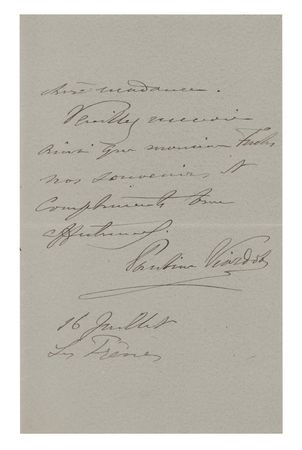 chère madame.
Veuillez recevoir
ainsi que monsieur Fuchs
nos souvenirs et
compliments
affectueux.
Pauline Viardot
16 Juillet
Les Frênes